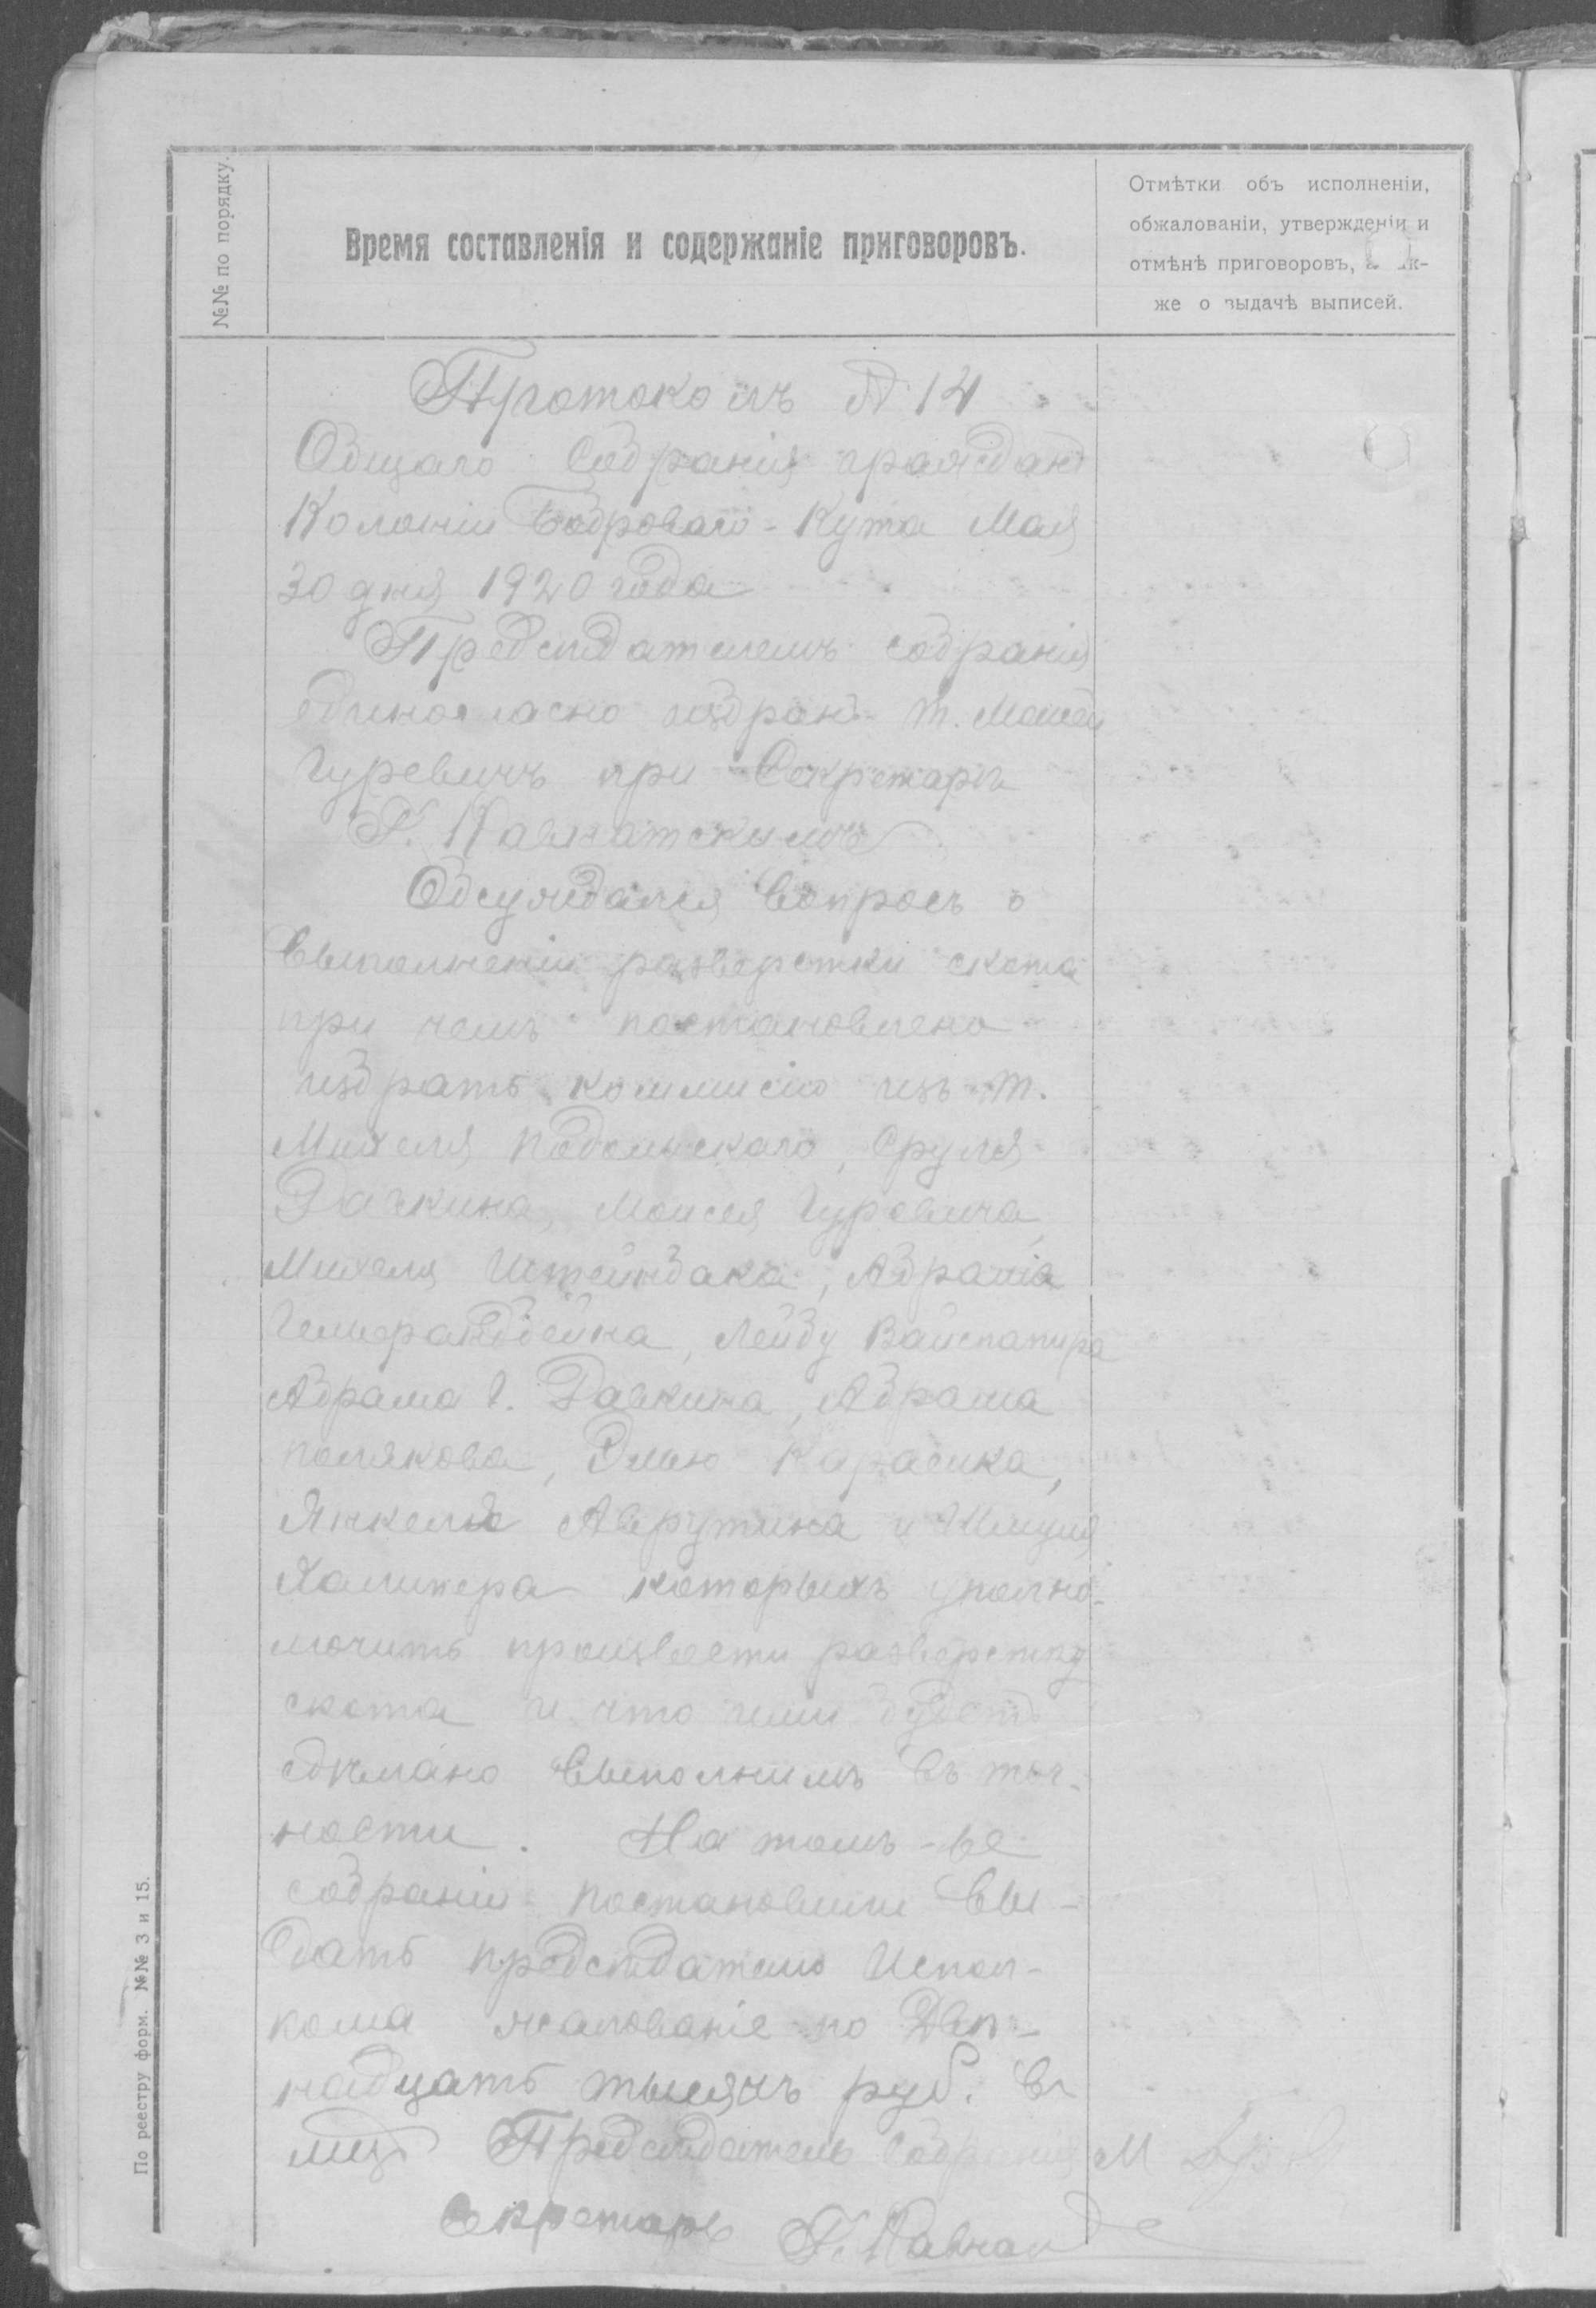 №№ по порядку.
Время составленія и содержаніе приговоровъ.
Отмѣтки объ исполненіи,
обжалованіи, утвержденіи и
отмѣнѣ приговоровъ, а к-
же о выдачѣ выписей.
Протоколъ № 14
Общаго Собранія граждан
Колоніи Боброваго-Кута Мая
30 дня 1920 года
Предсѣдателемъ собранія
единогласно избран т. Моисей
Гуревичъ при Секретарѣ
Обсуждался вопросъ о
выполненіи разверстки скота
при чемъ постановлено
избрать коммисію изъ т.
Михеля Подольскаго, Сруля
Моисея Гуревича,
Михеля Штейнбака, Абрама
Лейбу Вайспапира
Абрама Г. Абрама
Полякова, Элью Карасика,
Янкеля Аврутина и
Халипера которыхъ уполно-
мочить произвести разверстку
скота и что ими будетъ
сдѣлано выполнимъ въ точ-
ности. На томъ-же
собраніи постановили вы-
дать предсѣдателю Испол-
кома жалованіе по Двѣ-
надцать тысячъ руб. въ
мцъ Предсѣдатель Собранія М
Секретарь
По реестру форм. №№ 3 и 15.